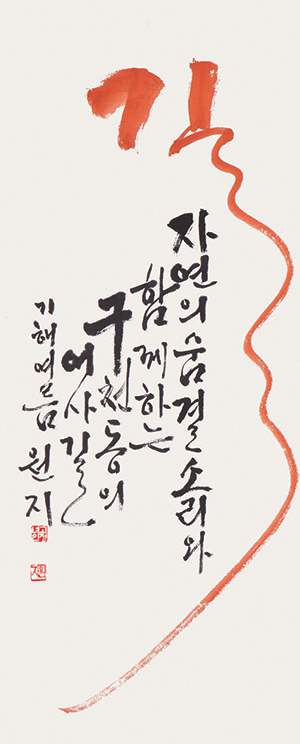 길
자연의 숨결 소리와
함께하는
구천동의
어사길
기해여름 원지